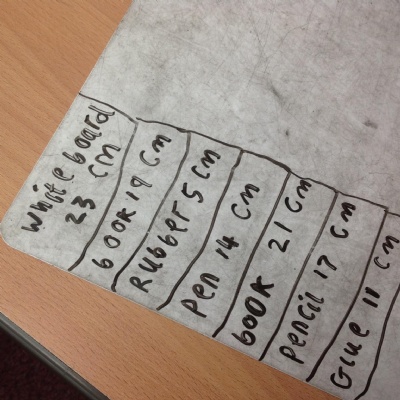 white board
23 cm
book 19 cm
Rubber 5 cm
Pen 14 cm
book 21 cm
Pencil 17 cm
Glue 11 cm